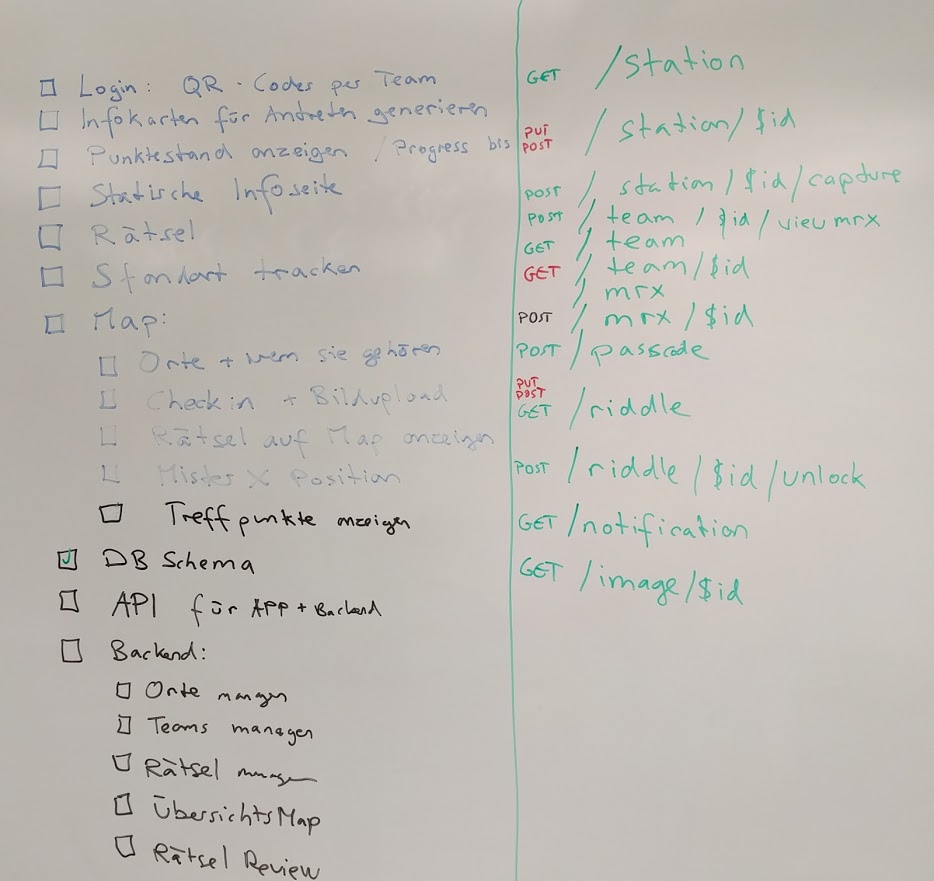 Login: QR-Codes per Team
Infokarten für Andreten generieren
Punktestand anzeigen / Progress bis
Statische Infoseite
Rätsel
Standort tracken
Map:
Orte + wem sie gehören
Check in + Bildupload
Rätsel auf Map anzeigen
Mister X Position
Treffpunkte anzeigen
DB Schema
API für APP + Backend
Backend:
Orte mangen
Teams managen
Rätsel managen
ÜbersichtsMap
Rätsel Review
GET /station
PUT
POST / station/ $id
POST / station / $id / capture
POST / team / $id / viewmrx
GET / team
GET / team/$id
/ mrx
POST / mrx / $id
POST / passcode
PUT
POST
GET /riddle
POST /riddle /$id /unlock
GET /notification
GET /image/$id